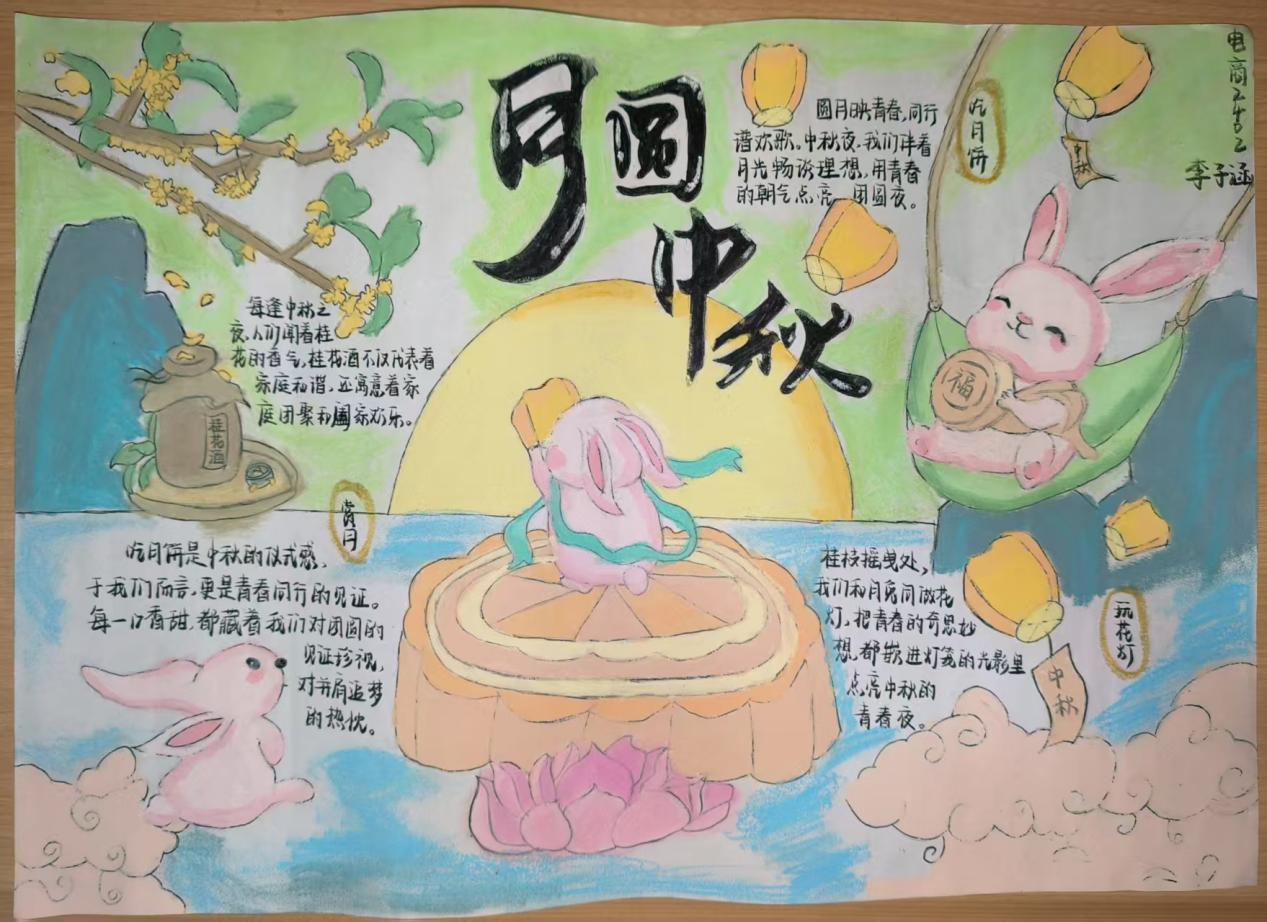 月圆
中秋
电商2402
李子涵
圆月映青春，同行
谱欢歌。中秋夜，我们伴着
月光畅谈理想，用青春
的朝气点亮团圆夜。
吃月饼
中秋
福
每逢中秋之
夜，人们闻着桂
花的香气，桂花酒不仅代表着
家庭和谐，还寓意着家
庭团聚和阖家欢乐。
桂花酒
赏月
吃月饼是中秋的仪式感，
于我们而言，更是青春同行的见证。
每一口香甜，都藏着我们对团圆的
见证珍视，
对并肩追梦
的热忱。
桂枝摇曳处，
我们和月兔同做花
灯，把青春的奇思妙
想，都嵌进灯笼的光影里
点亮中秋的
青春夜。
玩花灯
中秋